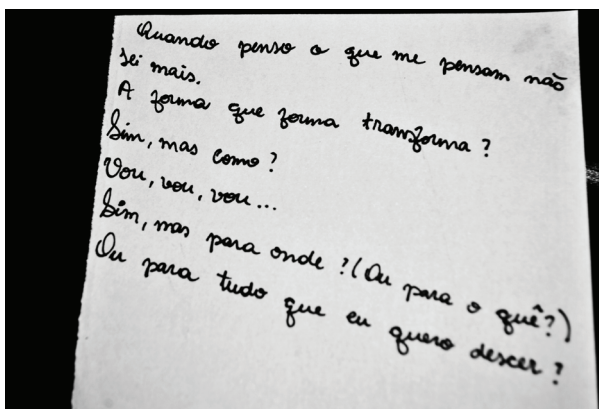 Quando penso o que me pensam não
sei mais.
A forma que forma transforma?
Sim, mas como?
Vou, vou, vou...
Sim, mas para onde?(Ou para o quê?)
Ou para tudo que eu quero descer?